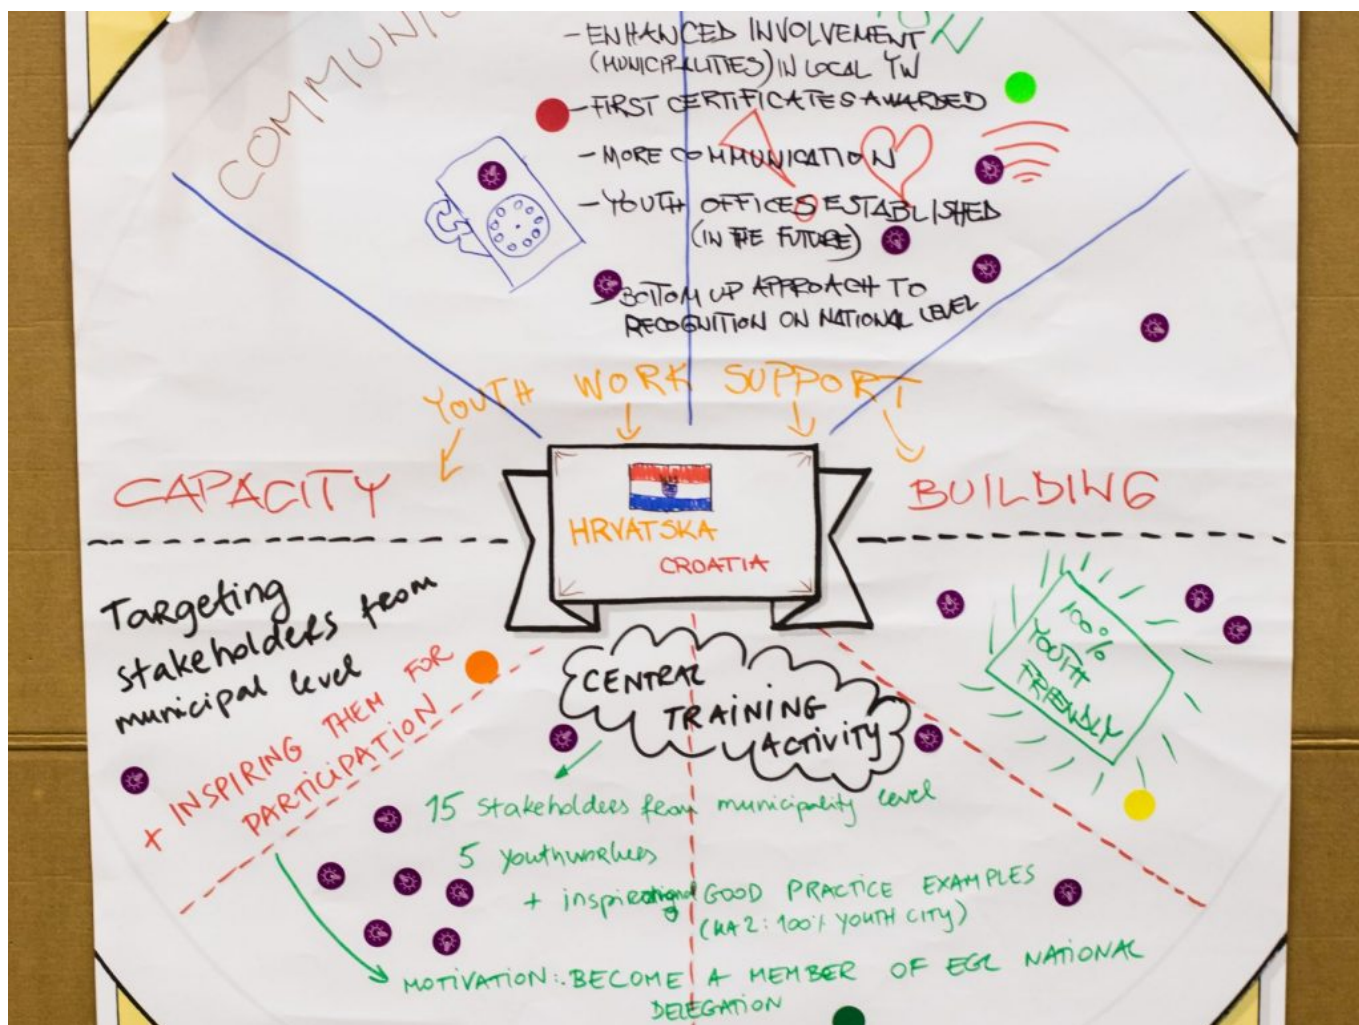 COMMUNIC
- ENHANCED INVOLVEMENT
(MUNICIPALITIES) IN LOCAL YW
- FIRST CERTIFICATES AWARDED
- MORE COMMUNICATION
- YOUTH OFFICES ESTABLISHED
(IN THE FUTURE)
- BOTTOM UP APPROACH TO
RECOGNITION ON NATIONAL LEVEL
YOUTH WORK SUPPORT
CAPACITY BUILDING
HRVATSKA
CROATIA
Targeting
stakeholders from
municipal level
+ INSPIRING THEM FOR
PARTICIPATION
CENTRAL
TRAINING
ACTIVITY
100%
YOUTH
FRIENDLY
15 stakeholders from municipality level
5 youthworkers
+ inspirational GOOD PRACTICE EXAMPLES
(KA2: 100% YOUTH CITY)
MOTIVATION: BECOME A MEMBER OF EGL NATIONAL
DELEGATION